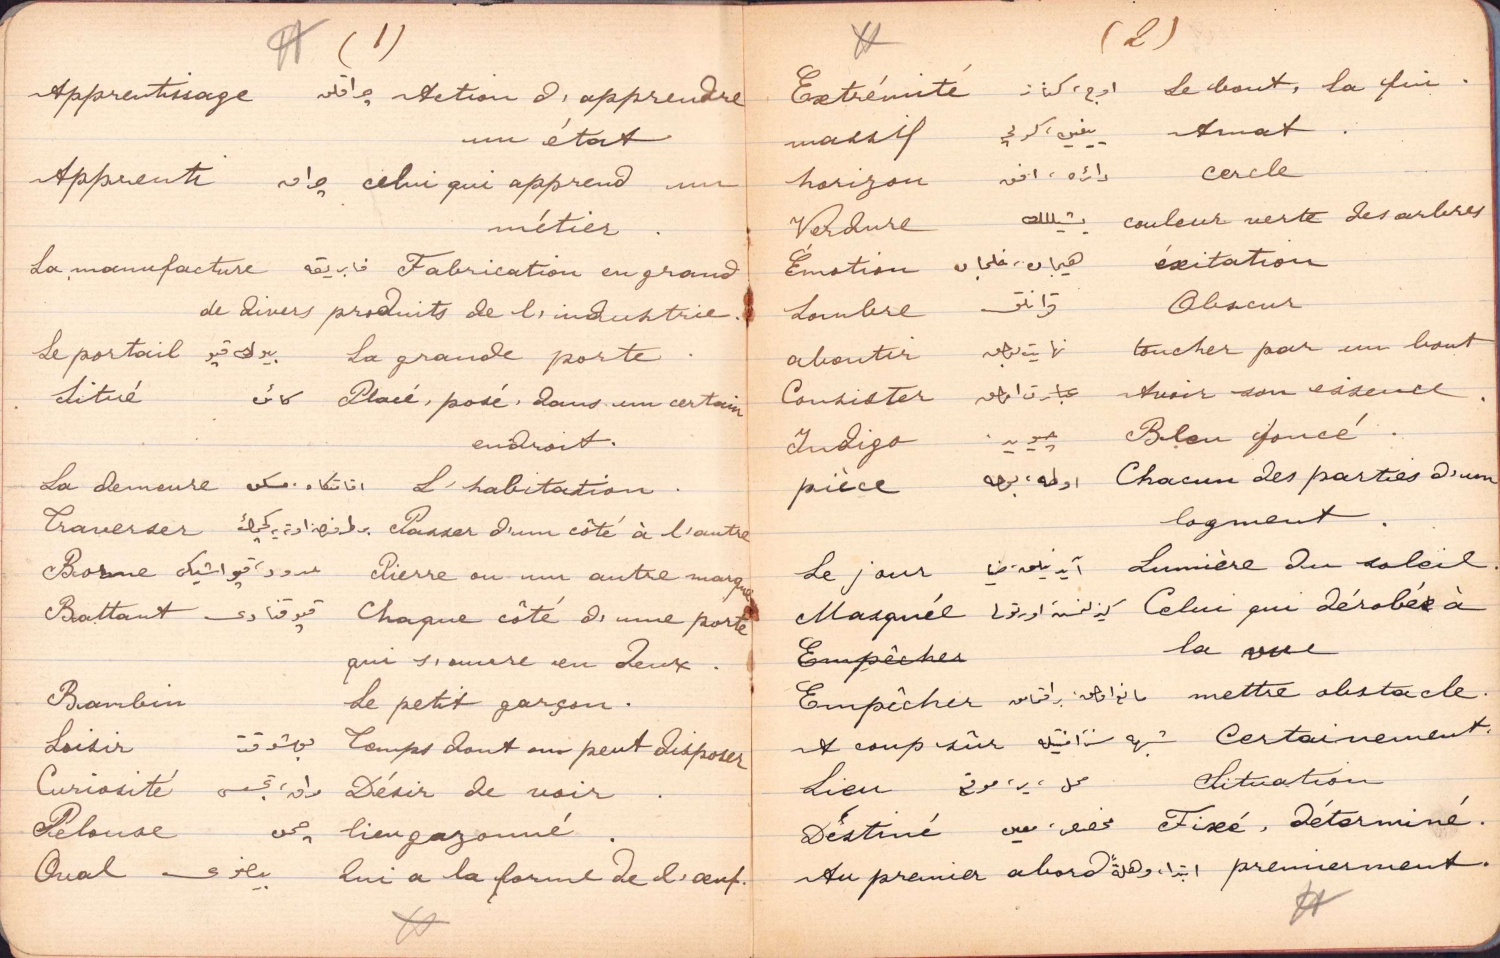 (1)
Apprentissage چراقلق Action d'apprendre
un état
Apprenti چراق celui qui apprend un
métier .
La manufacture فابریقه Fabrication en grand
de divers produits de l'industrie.
Le portail بیوك قپو La grande porte .
Situé كائن Placé, posé, dans un certain
endroit.
La demeure اقامتگاه، مسكن L'habitation .
Traverser Passer d'un côté à l'autre
Borne Pierre ou un autre marque
Battant قپو قنادی Chaque côté d'une porte
qui s'ouvre en deux .
Bambin Le petit garçon .
Loisir بوش وقت Temps dont on peut disposer
Curiosité مراق، تجسس Désir de voir .
Pelouse چمن lieu gazonné .
Oval بیضوی Qui a la forme de l'œuf.
(2)
Extrémité اوج، كنار Le bout, la fin .
massif Amat .
horizon دائره، افق cercle
Verdure یشیللك couleur verte des arbres
Émotion هیجان، خلجان éxitation
Sombre قرانلق Obscur
aboutir نهایت بولمق toucher par un bout
Consister عبارت اولمق Avoir son essence .
Indigo چوید Bleu foncé .
pièce اوطه، پارچه Chacun des parties d'un
logment .
Le jour آیدینلق، ضیا Lumière du soleil.
Masquél Celui qui dérobée à
Empêcher la vue
Empêcher مانع اولمق، براقمامق mettre obstacle.
A coup sûr شبهه سز Certainement.
Lieu محل، یر، موقع Situation
Déstiné مخصص، معین Fixé, déterminé.
Au premier abord ابتدا، وهلةً premierment.